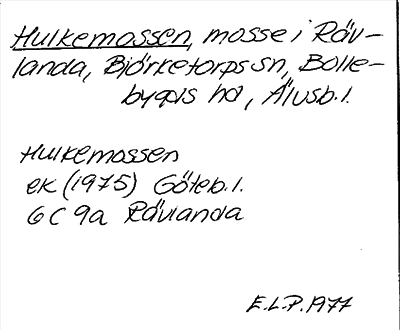 Hulkemossen, mosse i Räv-
landa, Björketorps sn, Bolle-
bygds hd, Älvsb. l.
Hulkemossen
ek (1975) Göteb. l.
6 C 9a Rävlanda
E.L.P. 1977